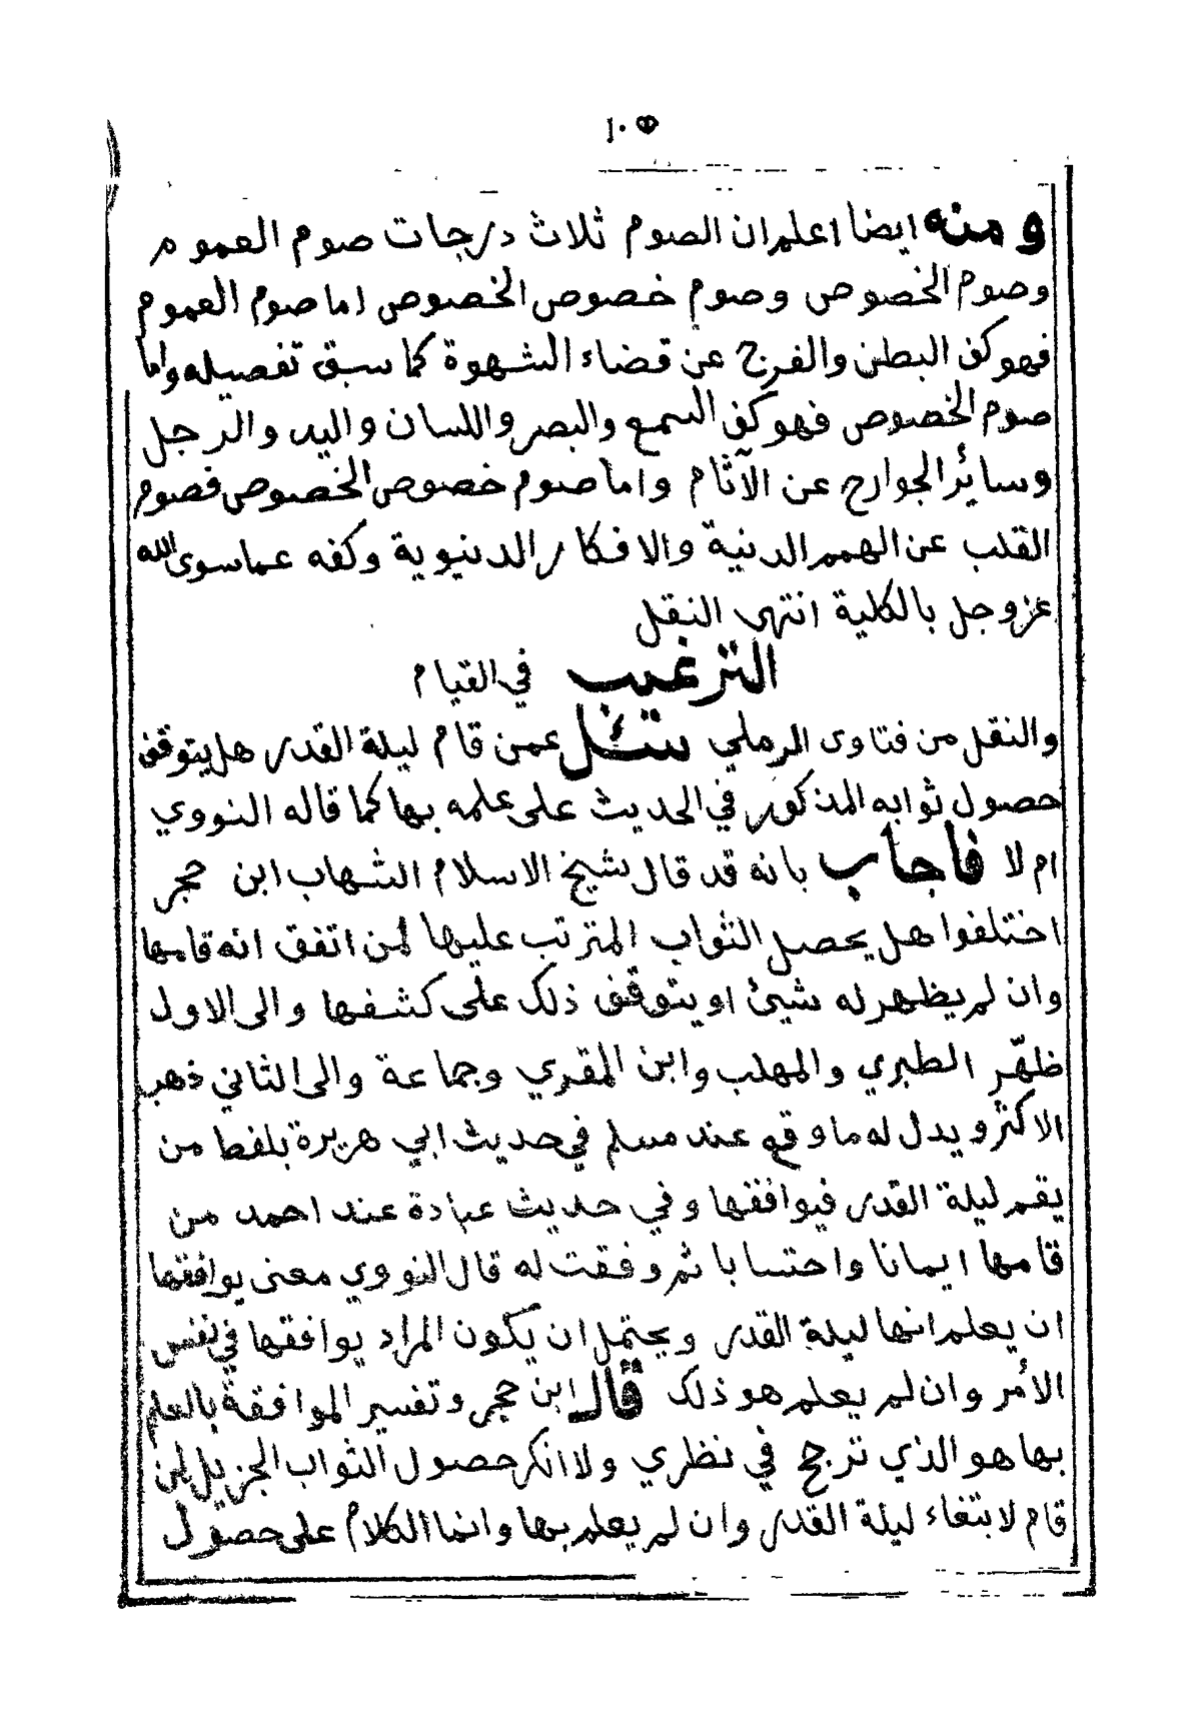 ١٠٥
ومنه ايضا اعلم ان الصوم ثلاث درجات صوم العموم
وصوم الخصوص وصوم خصوص الخصوص اما صوم العموم
فهو كف البطن والفرج عن قضاء الشهوة كما سبق تفصيله واما
صوم الخصوص فهو كف السمع والبصر واللسان واليد والرجل
وسائر الجوارح عن الآثام واما صوم خصوص الخصوص فصوم
القلب عن الهمم الدنية والافكار الدنيوية وكفه عما سوى الله
عز وجل بالكلية انتهى النقل
الترغيب في القيام
والنقل من فتاوى الرملي سئل عمن قام ليلة القدر هل يتوقف
حصول ثوابه المذكور في الحديث على علمه بها كما قاله النووي
ام لا فاجاب بانه قد قال شيخ الاسلام الشهاب ابن حجر
اختلفوا هل يحصل الثواب المترتب عليها لمن اتفق انه قامها
وان لم يظهر له شيئ او يتوقف ذلك على كشفها والى الاول
ظهّر الطبري والمهلب وابن المقري وجماعة والى الثاني ذهب
الاكثر ويدل له ما وقع عند مسلم في حديث ابي هريرة بلفظ من
يقم ليلة القدر فيوافقها وفي حديث عبادة عند احمد من
قامها ايمانا واحتسابا ثم وفقت له قال النووي معنى يوافقها
ان يعلم انها ليلة القدر ويحتمل ان يكون المراد يوافقها في نفس
الأمر وان لم يعلم هو ذلك قال ابن حجر وتفسير الموافقة بالعلم
بها هو الذي ترجح في نظري ولا انكر حصول الثواب الجزيل لمن
قام لابتغاء ليلة القدر وان لم يعلم بها وانما الكلام على حصول